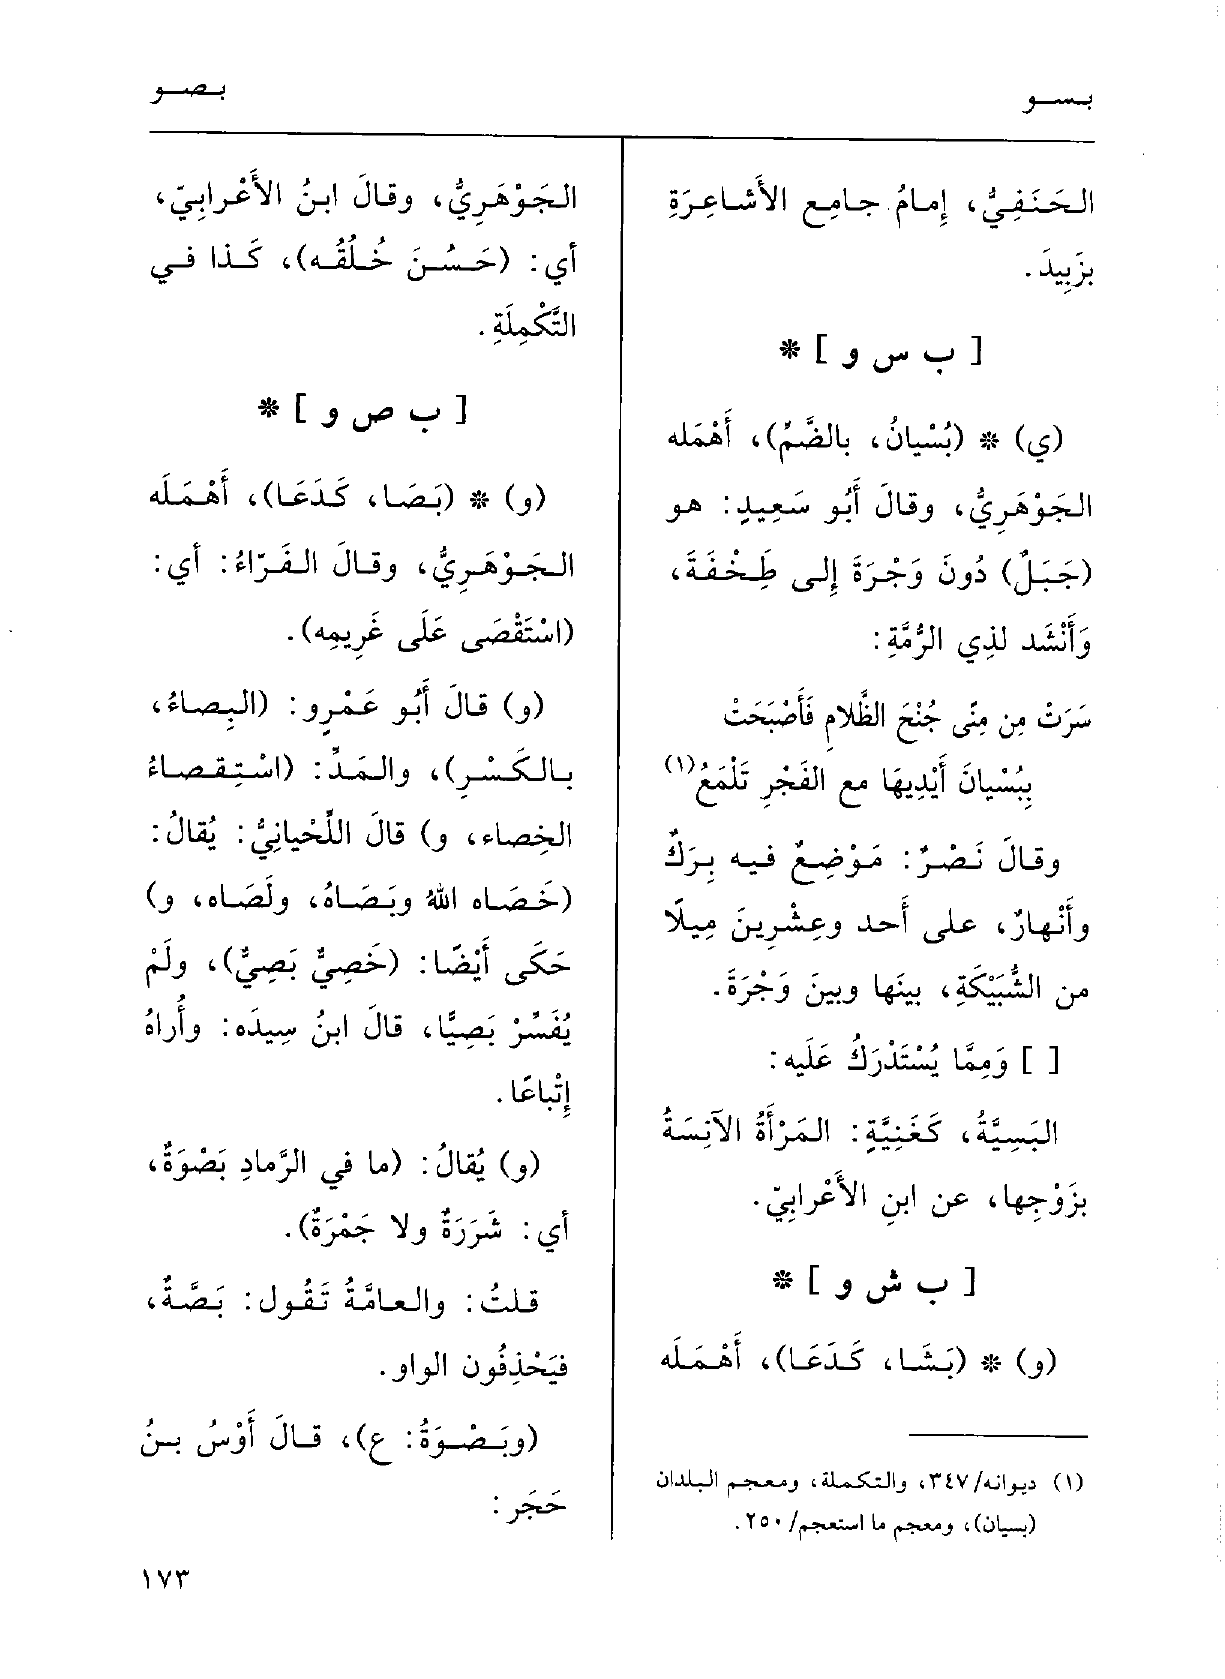 بسو
بصو
الحَنَفِيُّ، إِمامُ جامِعِ الأَشاعِرَةِ
بزَبِيدَ.
[ ب س و ] *
(ي) * (بُسْيانُ، بالضَّمِّ)، أَهْمَله
الجَوْهَرِيُّ، وقالَ أَبُو سَعِيدٍ: هو
(جَبَلٌ) دُونَ وَجْرَةَ إِلى طِخْفَةَ،
وَأَنْشَد لذِي الرُّمَّةِ:
سَرَتْ مِن مِنًى جُنْحَ الظَّلامِ فَأَصْبَحَتْ
بِبُسْيانَ أَيْدِيهَا مع الفَجْرِ تَلْمَعُ(١)
وقالَ نَصْرٌ: مَوْضِعٌ فيه بِرَكٌ
وأَنْهارٌ، على أَحد وعِشْرِينَ مِيلًا
من الشُّبَيْكَةِ، بينَها وبينَ وَجْرَةَ.
[ ] وَمِمَّا يُسْتَدْرَكُ عَلَيه:
البَسِيَّةُ، كَغَنِيَّةٍ: المَرْأَةُ الآنِسَةُ
بزَوْجِها، عن ابنِ الأَعْرابِيّ.
[ ب ش و ] *
(و) * (بَشَا، كَدَعَا)، أَهْمَلَه
(١) ديوانه/٣٤٧، والتكملة، ومعجم البلدان
(بسيان)، ومعجم ما استعجم/٢٥٠.
الجَوْهَرِيُّ، وقالَ ابنُ الأَعْرابِيّ،
أي: (حَسُنَ خُلُقُه)، كَذا في
التَّكْمِلَةِ.
[ ب ص و ] *
(و) * (بَصَا، كَدَعَا)، أَهْمَلَه
الجَوْهَرِيُّ، وقالَ الفَرّاءُ: أي:
(اسْتَقْصَى عَلَى غَرِيمِه).
(و) قالَ أَبُو عَمْرٍو: (البِصاءُ،
بالكَسْرِ)، والمَدِّ: (اسْتِقصاءُ
الخِصاء، و) قالَ اللِّحْيانِيُّ: يُقالُ:
(خَصَاه اللهُ وبَصَاهُ، ولَصَاه، و)
حَكَى أَيْضًا: (خَصِيٌّ بَصِيٌّ)، ولَمْ
يُفَسِّرْ بَصِيًّا، قالَ ابنُ سِيدَه: وأُراهُ
إِتْباعًا.
(و) يُقالُ: (ما في الرَّمادِ بَصْوَةٌ،
أي: شَرَرَةٌ ولا جَمْرَةٌ).
قلتُ: والعامَّةُ تَقُول: بَصَّةٌ،
فيَحْذِفُون الواو.
(وبَصْوَةُ: ع)، قالَ أَوْسُ بنُ
حَجَر:
١٧٣